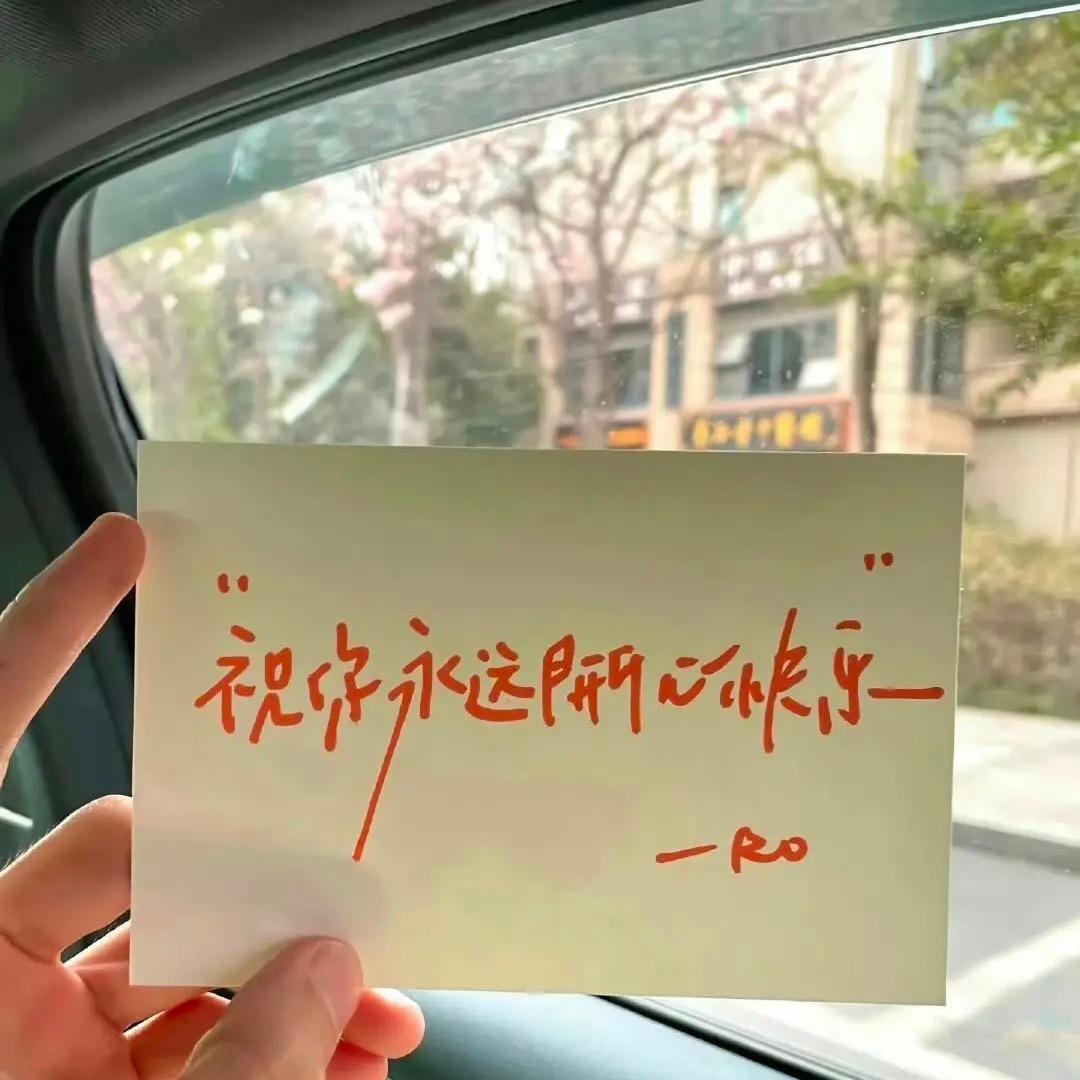 "祝你永远開心快乐"
—RO